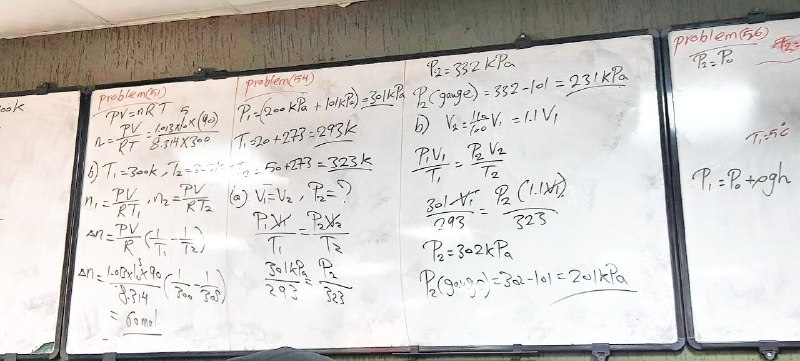 ook
problem(51)
PV=nRT
n=PV/RT=1.013x10^5x(90)/8.314x300
b) T1=300k, T2=
n1=PV/RT1, n2=PV/RT2
Δn=PV/R(1/T1-1/T2)
Δn=1.013x10^5x90/8.314(1/300-1/305)
=60mol
problem(54)
P1=(200kPa+101kPa)=301kPa
T1=20+273=293k
T2=50+273=323k
(a) V1=V2, P2=?
P1V1/T1=P2V2/T2
301kPa/293=P2/323
P2=332kPa
P2(gauge)=332-101=231kPa
b) V2=110/100V1=1.1V1
P1V1/T1=P2V2/T2
301V1/293=P2(1.1V1)/323
P2=302kPa
P2(gauge)=302-101=201kPa
problem(56)
P2=P0
T1=5c
P1=P0+ρgh